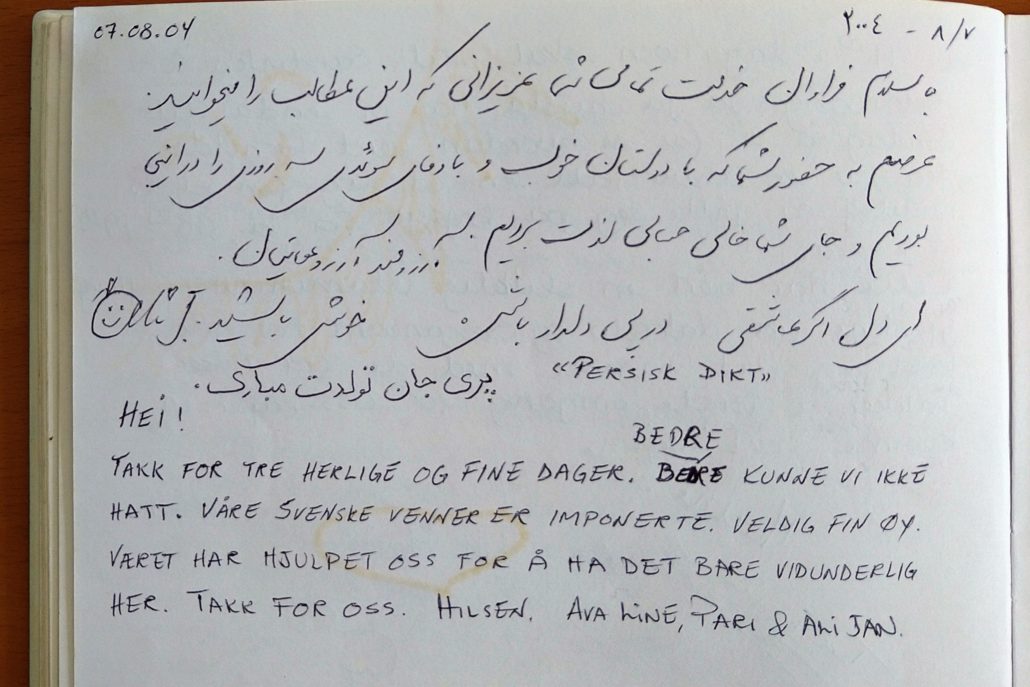 07.08.04
۲۰۰۴ - ۸/۷
با سلام فراوان خدمت تمامی عزیزانی که این مطالب را میخوانید.
عرضم به حضور شما که با دوستان خوب و باوفای سوئدی سه روزی را در اینجا
بودیم و جای شما خالی حسابی لذت بردیم.
ای دل اگر عاشقی در پی دلدار باش. خوش باشید.
«PERSISK DIKT»
پری جان تولدت مبارک.
HEI!
BEDRE
TAKK FOR TRE HERLIGE OG FINE DAGER. BEDRE KUNNE VI IKKE
HATT. VÅRE SVENSKE VENNER ER IMPONERTE. VELDIG FIN ØY.
VÆRET HAR HJULPET OSS FOR Å HA DET BARE VIDUNDERLIG
HER. TAKK FOR OSS. HILSEN, AVA LINE, PARI & ALI JAN.